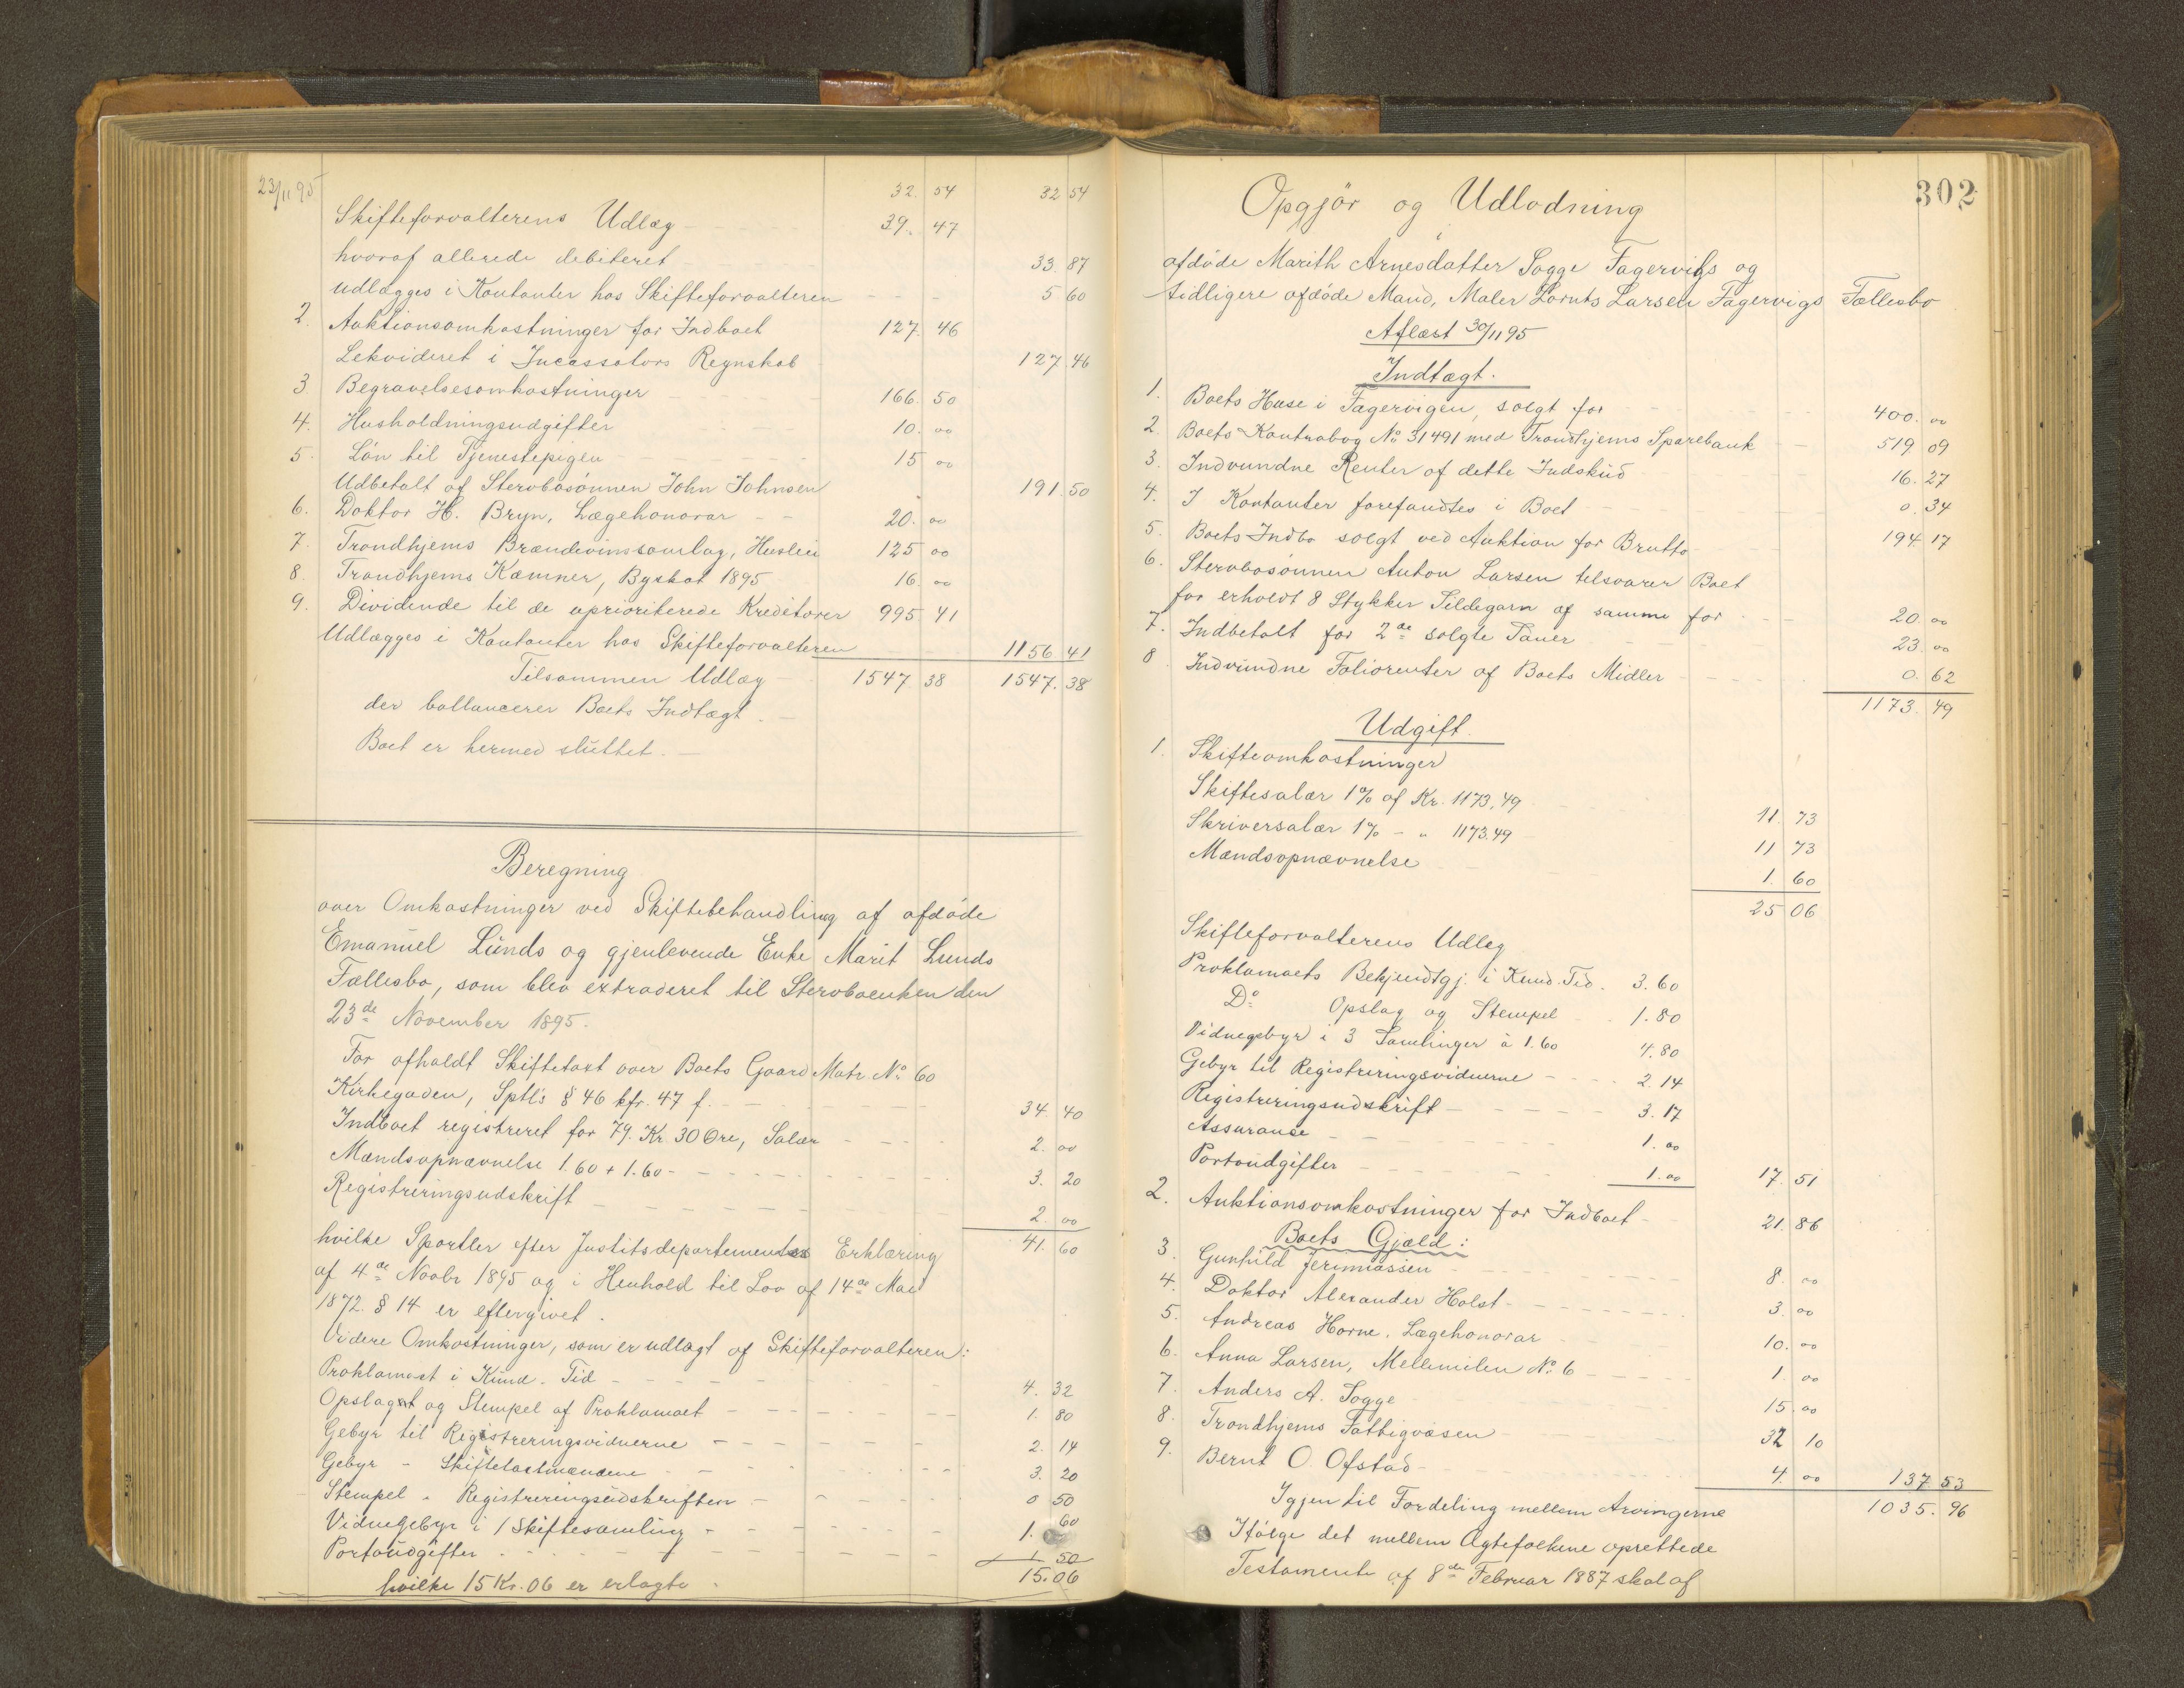 23/11 95
32. 54 32 54
Skifteforvalterens Udlæg 39. 47
hvoraf allerede debiteret 33. 87
udlægges i Kontanter hos Skifteforvalteren 5 60
2. Auktionsomkostninger for Indboet 127. 46
Lekvideret i Incassators Regnskab 127. 46
3 Begravelsesomkostninger 166. 50
4. Husholdningsudgifter 10. 00
5. Løn til Tjenestepigen 15 00
Udbetalt af Stervbosønnen John Johnsen 191. 50
6. Doktor H. Bryn, Lægehonorar 20. 00
7. Trondhjems Brændevinssamlag, Husleie 125 00
8. Trondhjems Kæmner, Byskat 1895 16. 00
9. Dividende til de uprioriterede Kreditorer 995. 41
Udlægges i Kontanter hos Skifteforvalteren 1156 41
Tilsammen Udlæg 1547. 38 1547. 38
der ballancerer Boets Indtægt.
Boet er hermed sluttet.
Beregning
over Omkostninger ved Skiftebehandling af afdøde
Emanuel Lunds og gjenlevende Enke Marit Lunds
Fællesbo, som blev extraderet til Stervboenken den
23de November 1895.
For afholdt Skiftetaxt over Boets Gaard Matr. No 60
Kirkegaden, Sptl's § 46 kfr. 47 f. 34. 40
Indboet registreret for 79. Kr. 30 Øre, Salær 2. 00
Mandsopnævnelse 1.60 + 1.60 3. 20
Registreringsudskrift 2. 00
41. 60
hvilke Sportler efter Justitsdepartementets Erklæring
af 4de Novbr 1895 og i Henhold til Lov af 14de Mai
1872. § 14 er eftergivet.
Videre Omkostninger, som er udlagt af Skifteforvalteren:
Proklamaet i Kund. Tid 4. 32
Opslaget og Stempel af Proklamaet 1. 80
Gebyr til Registreringsvidnerne 2. 14
Gebyr - Skiftetaxtmændene 3. 20
Stempel - Registreringsudskriften 0 50
Vidnegebyr i 1 Skiftesamling 1. 60
Portoudgifter 1. 50
hvilke 15 Kr. 06 er erlagte. 15. 06
302
Opgjør og Udlodning
i
afdøde Marith Arnesdatter Sogge Fagervigs og
tidligere afdøde Mand, Maler Lornts Larsen Fagervigs Fællesbo
Aflæst 30/11 95
Indtægt.
1. Boets Huse i Fagervigen, solgt for 400. 00
2. Boets Kontrabog No 31491 med Trondhjems Sparebank 519 09
3. Indvundne Renter af dette Indskud 16. 27
4. I Kontanter forefandtes i Boet 0. 34
5. Boets Indbo solgt ved Auktion for Brutto 194. 17
6. Stervbosønnen Anton Larsen tilsvarer Boet
for erholdt 8 Stykker Sildegarn af samme for 20. 00
7. Indbetalt for 2de solgte Sauer 23. 00
8 Indvundne Foliorenter af Boets Midler 0. 62
1173. 49
Udgift.
1. Skifteomkostninger
Skiftesalær 1% af Kr. 1173,49 11. 73
Skriversalær 1% - " 1173.49 11 73
Mandsopnævnelse 1. 60
25 06
Skifteforvalterens Udlæg
Proklamaets Bekjendtgj. i Kund. Tid. 3. 60
Do Opslag og Stempel 1. 80
Vidnegebyr i 3 Samlinger à 1.60 4. 80
Gebyr til Registreringsvidnerne 2. 14
Registreringsudskrift 3. 17
Assuranse 1. 00
Portoudgifter 1. 00 17. 51
2. Auktionsomkostninger for Indboet 21. 86
Boets Gjæld:
3. Gunhild Jeremiassen 8. 00
4. Doktor Alexander Holst 3. 00
5. Andreas Horne, Lægehonorar 10. 00
6. Anna Larsen, Mellemilen No 6 1. 00
7. Anders A. Sogge 15. 00
8. Trondhjems Fattigvæsen 32 10
9. Bernt O. Ofstad 4. 00 137 53
Igjen til Fordeling mellem Arvingerne 1035. 96
Ifølge det mellem Ægtefolkene oprettede
Testamente af 8de Februar 1887 skal af